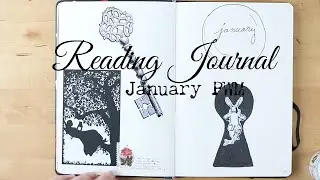 Reading Journal
January
january